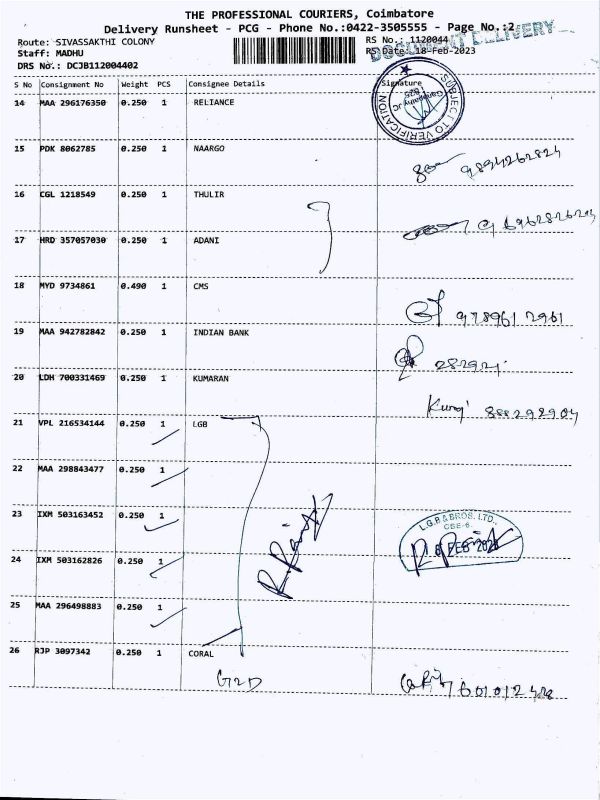 THE PROFESSIONAL COURIERS, Coimbatore
Delivery Runsheet - PCG - Phone No.:0422-3505555 - Page No.:2
Route: SIVASSAKTHI COLONY
RS No.: 1120044
DOCUMENT DELIVERY
Staff: MADHU
RS Date: 18-Feb-2023
DRS No.: DCJB112004402
S No Consignment No Weight PCS Consignee Details Signature
SUBJECT TO VERIFICATION
14 MAA 296176350 0.250 1 RELIANCE
15 PDK 8062785 0.250 1 NAARGO
16 CGL 1218549 0.250 1 THULIR
17 HRD 357057030 0.250 1 ADANI
18 MYD 9734861 0.490 1 CMS
9789612961
19 MAA 942782842 0.250 1 INDIAN BANK
282921
20 LDH 700331469 0.250 1 KUMARAN
21 VPL 216534144 0.250 1 LGB
22 MAA 298843477 0.250 1
23 IXM 503163452 0.250 1
L.G.B & BROS. LTD.,
CBE-6.
24 IXM 503162826 0.250 1
25 MAA 296498883 0.250 1
26 RJP 3097342 0.250 1 CORAL